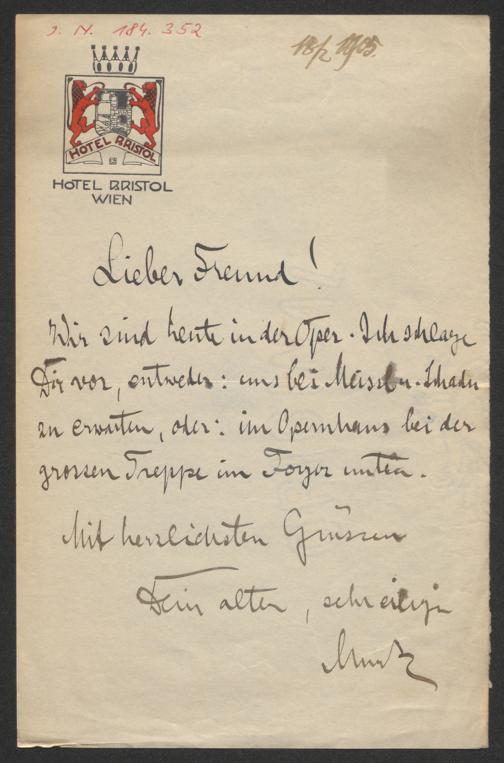 J. N. 184.352
18/2 1905.
HOTEL BRISTOL
HOTEL BRISTOL
WIEN
Lieber Freund!
Wir sind heute in der Oper. Ich schlage
Dir vor, entweder: uns bei Meissl u. Schadn
zu erwarten, oder: im Opernhaus bei der
grossen Treppe im Foyer unten.
Mit herzlichsten Grüssen
Dein alter, sehr eiliger
Muck